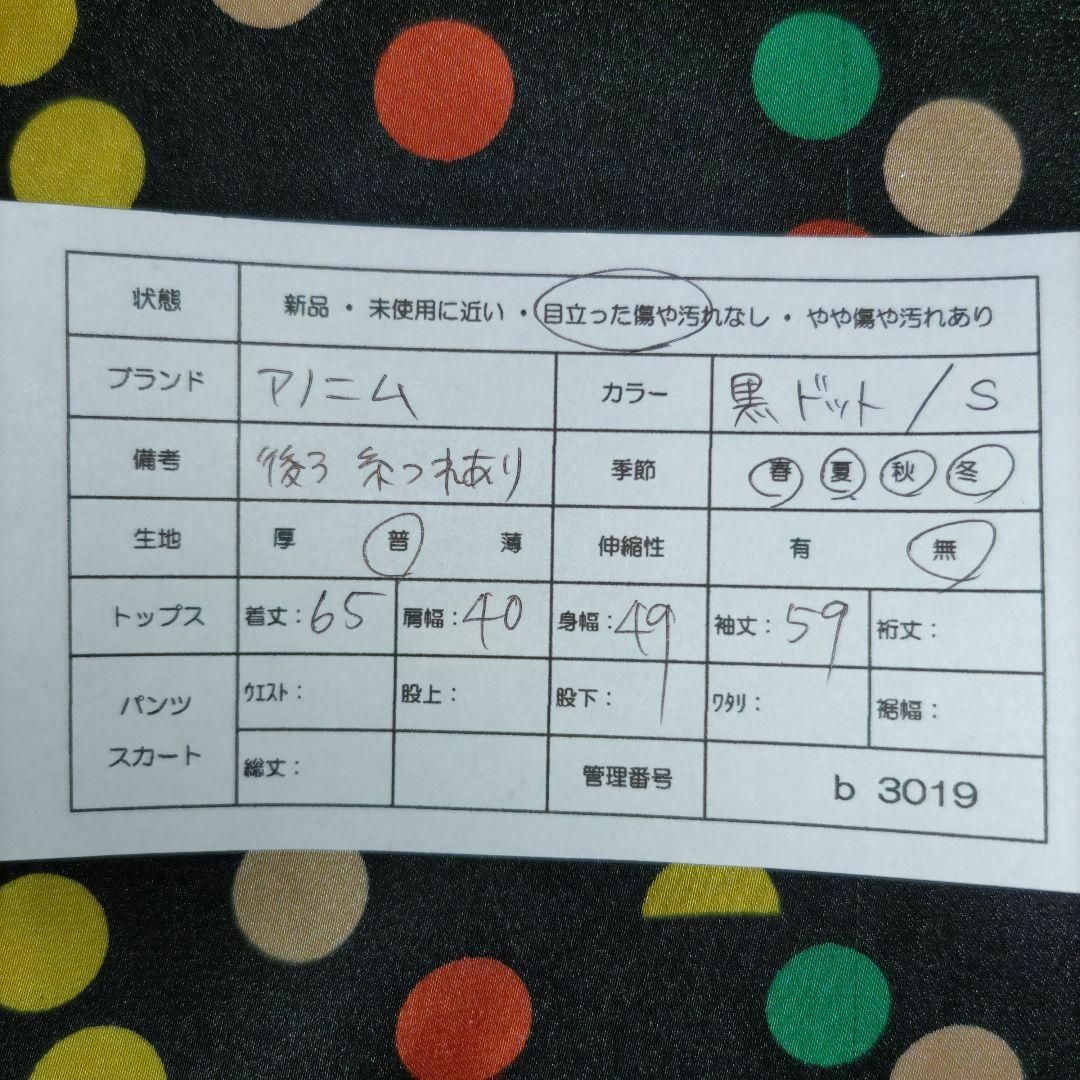 状態 新品・未使用に近い・目立った傷や汚れなし・やや傷や汚れあり
ブランド アノニム カラー 黒 ドット / S
備考 後ろ 糸つれあり 季節 春 夏 秋 冬
生地 厚 普 薄 伸縮性 有 無
トップス 着丈:65 肩幅:40 身幅:49 袖丈:59 裄丈:
パンツ スカート ウエスト: 股上: 股下: ワタリ: 裾幅:
総丈: 管理番号 b 3019